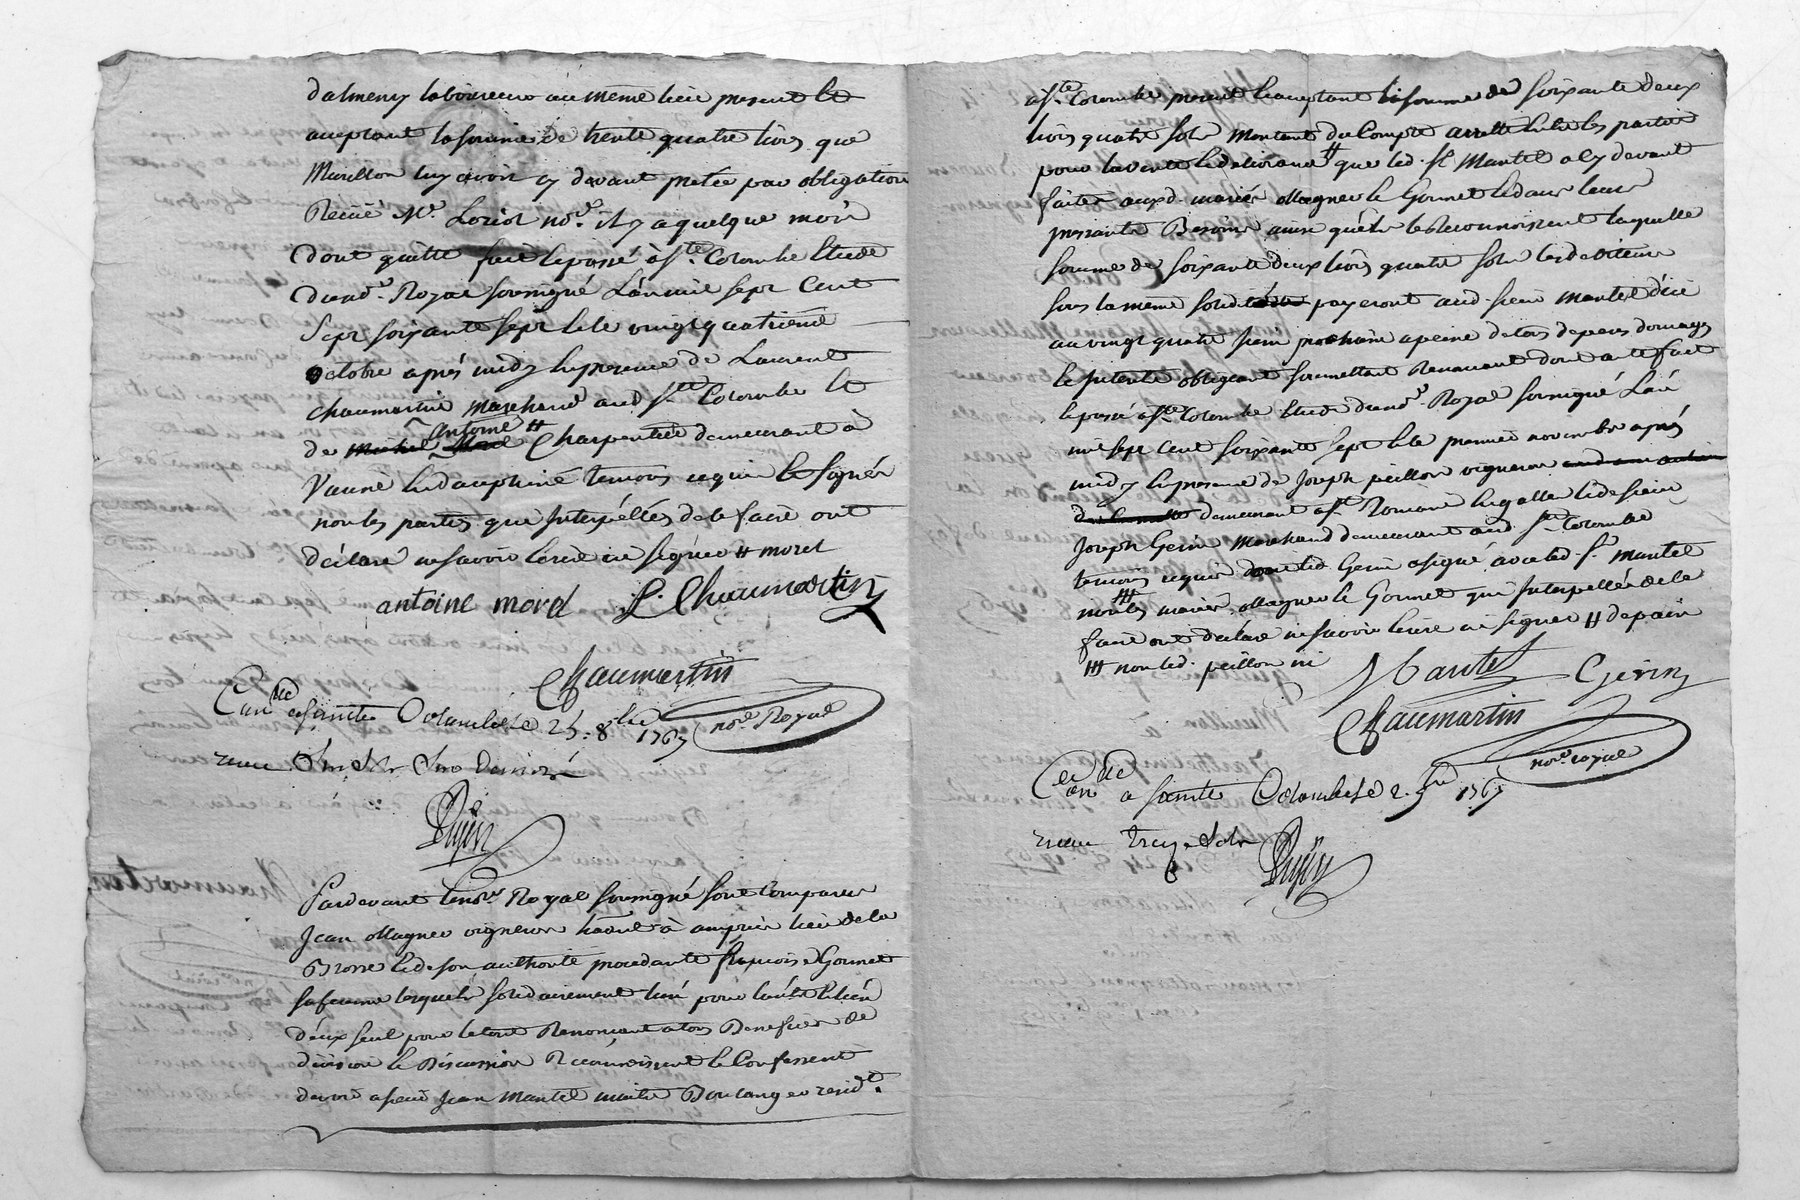 dalmeny laboureur au même lieu present Et
acceptant la somme de trente quatre livres que
Marillon luy avoit cy devant pretée par obligation
Receue Me. Loriot nore. il y a quelque mois
dont quitte fait et passé à Ste. Colombe Etude
dud nore. Royal soussigné L'an mil sept Cent
Sept soixante sept et le vingt quatrieme
octobre après midy En presence de Laurent
Chaumartin Marchand aud Ste Colombe Et
de Antoine # Charpentier demeurant à
Vienne En dauphiné temoins requis Et signés
non les parties qui Interpéllées de le faire ont
déclaré ne savoir Ecrire ni signer # morel
antoine morel L. Chaumartin
Chaumartin
nore. Royal
Con lle a Sainte Colombe le 25. 8bre 1767
recu
Pardevant le nore Royal soussigné sont Comparus
Jean Magner vigneron à ampuis lieu de la
Brosse Et de son authorité procedante françoise Gonnet
sa femme lesquels solidairement l'un pour l'autre Et l'un
d'eux seul pour le tout Renonçant a tous Benefices de
division Et Discussion Reconnoissent Et Confessent
devoir a sieur Jean Mantel maitre Boulanger resid.t
a Ste. Colombe present Et acceptant la somme de soixante deux
livres quatre sols montant du Compte arretté Entre les parties
pour la vente Et delivrance # que led. sr Mantel a Cy devant
faites auxd. mariés Magner Et Gonnet Et dans leurs
pressants Besoins ainsi qu'ils le Reconnoissent laquelle
somme de soixante deux livres quatre sols les debiteurs
sous la même solidité payeront aud. sieur mantel d'ici
au vingt quatre juin prochain a peine de tous depens domages
Et interets obligeant soumettant Renonçant dont acte fait
Et passé a Ste Colombe Etude dud nore. Royal soussigné L'an
mil sept Cent soixante sept Et le premier novembre après
midy En presence de Joseph peillon vigneron
demeurant a St Romain En galle Et de sieur
Joseph Gerin Marchand demeurant aud. Ste Colombe
temoins requis dont led Gerin a signé avec led. sr. mantel
non les mariés Magner Et Gonnet qui Interpellés de le
faire ont declaré ne savoir Ecrire ni signer # de pain
### non led. peillon ni
Mantel Gerin
Chaumartin
nore. royal
Con lle a Sainte Colombe le 2. 9bre 1767
recu treize sols